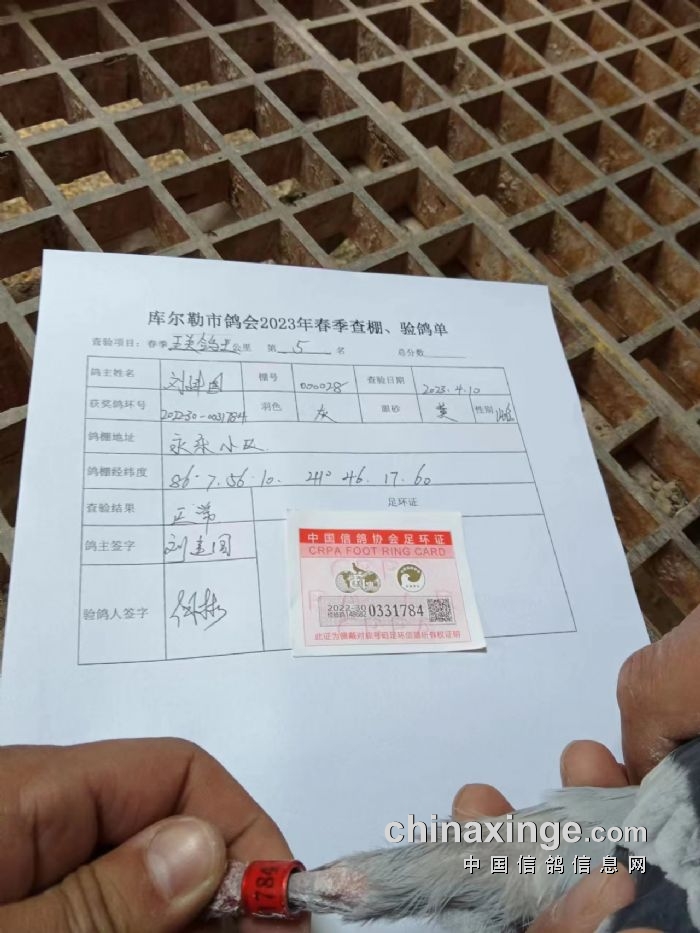 库尔勒市鸽会2023年春季查棚、验鸽单
查验项目：春季 公里 第 5 名 总分数
鸽主姓名 刘建国 棚号 000028 查验日期 2023.4.10
获奖鸽环号 2022-30-0331784 羽色 灰 眼砂 黄 性别 雌
鸽棚地址 永 小区
鸽棚经纬度 86.7.56.10. 41° 46. 17. 60
查验结果 正常 足环证
鸽主签字 刘建国
验鸽人签字
中国信鸽协会足环证
CRPA FOOT RING CARD
2022-30 0331784
此证为佩戴对应号码足环信鸽所有权证明
1784
chinaxinge.com
中国信鸽信息网